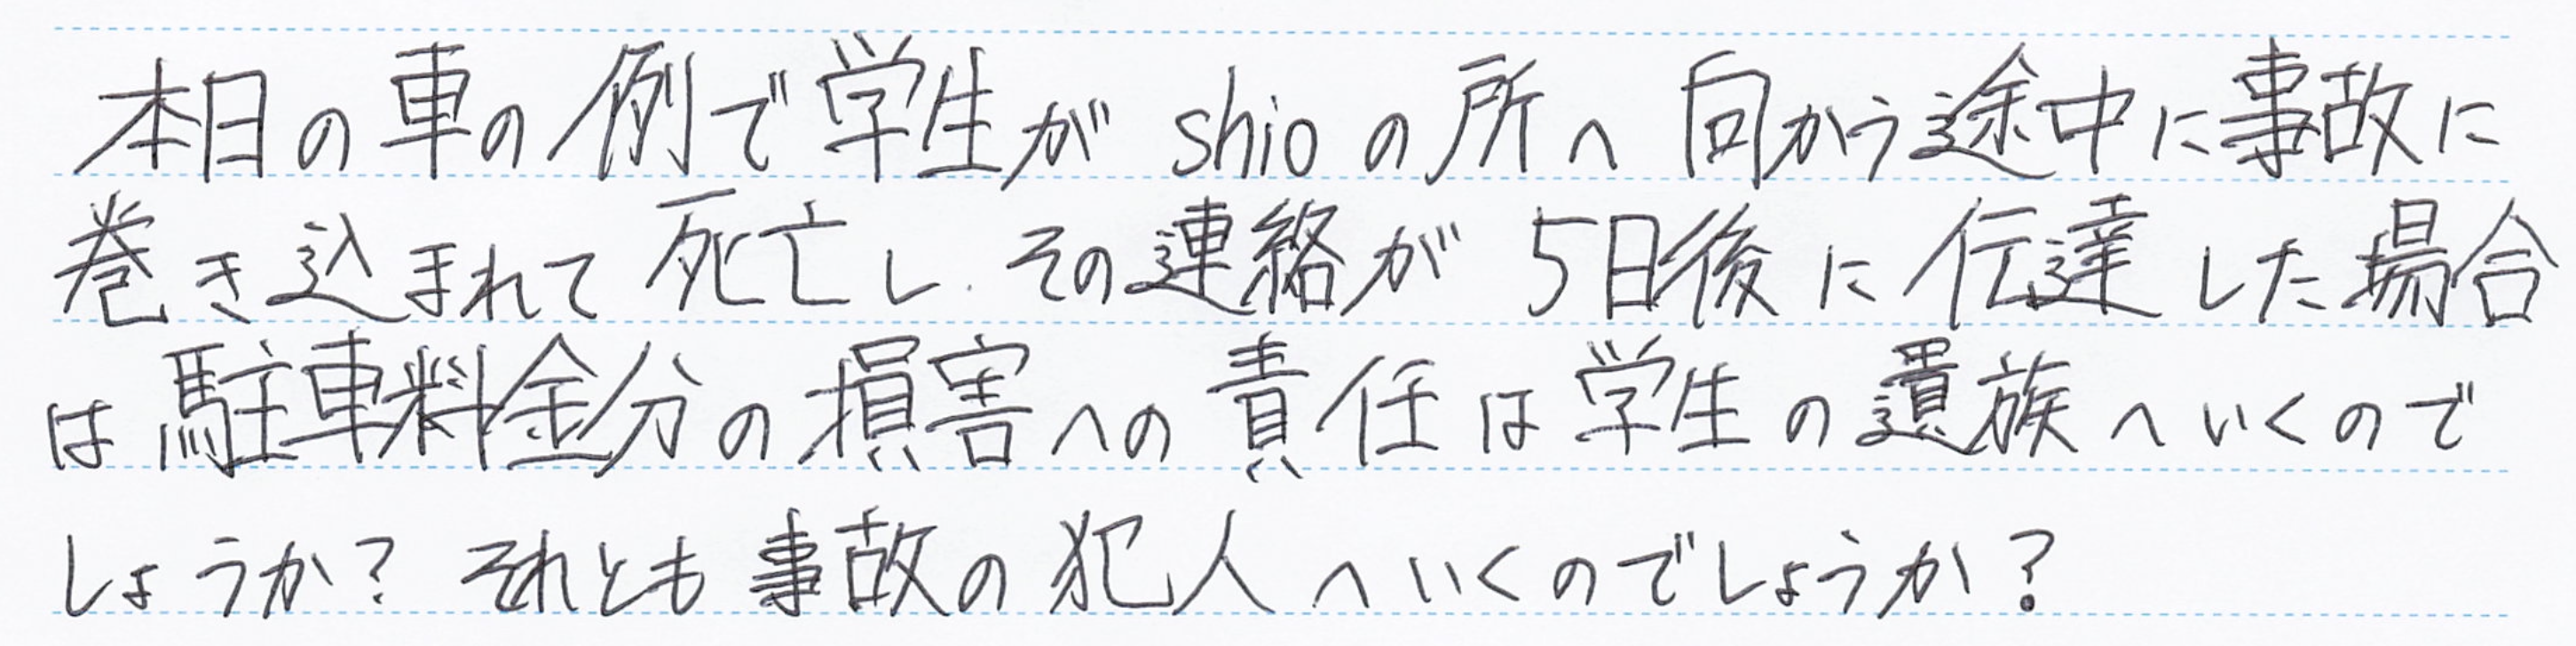 本日の車の例で学生がshioの所へ向かう途中に事故に
巻き込まれて死亡し、その連絡が5日後に伝達した場合
は駐車料金分の損害への責任は学生の遺族へいくので
しょうか?それとも事故の犯人へいくのでしょうか?